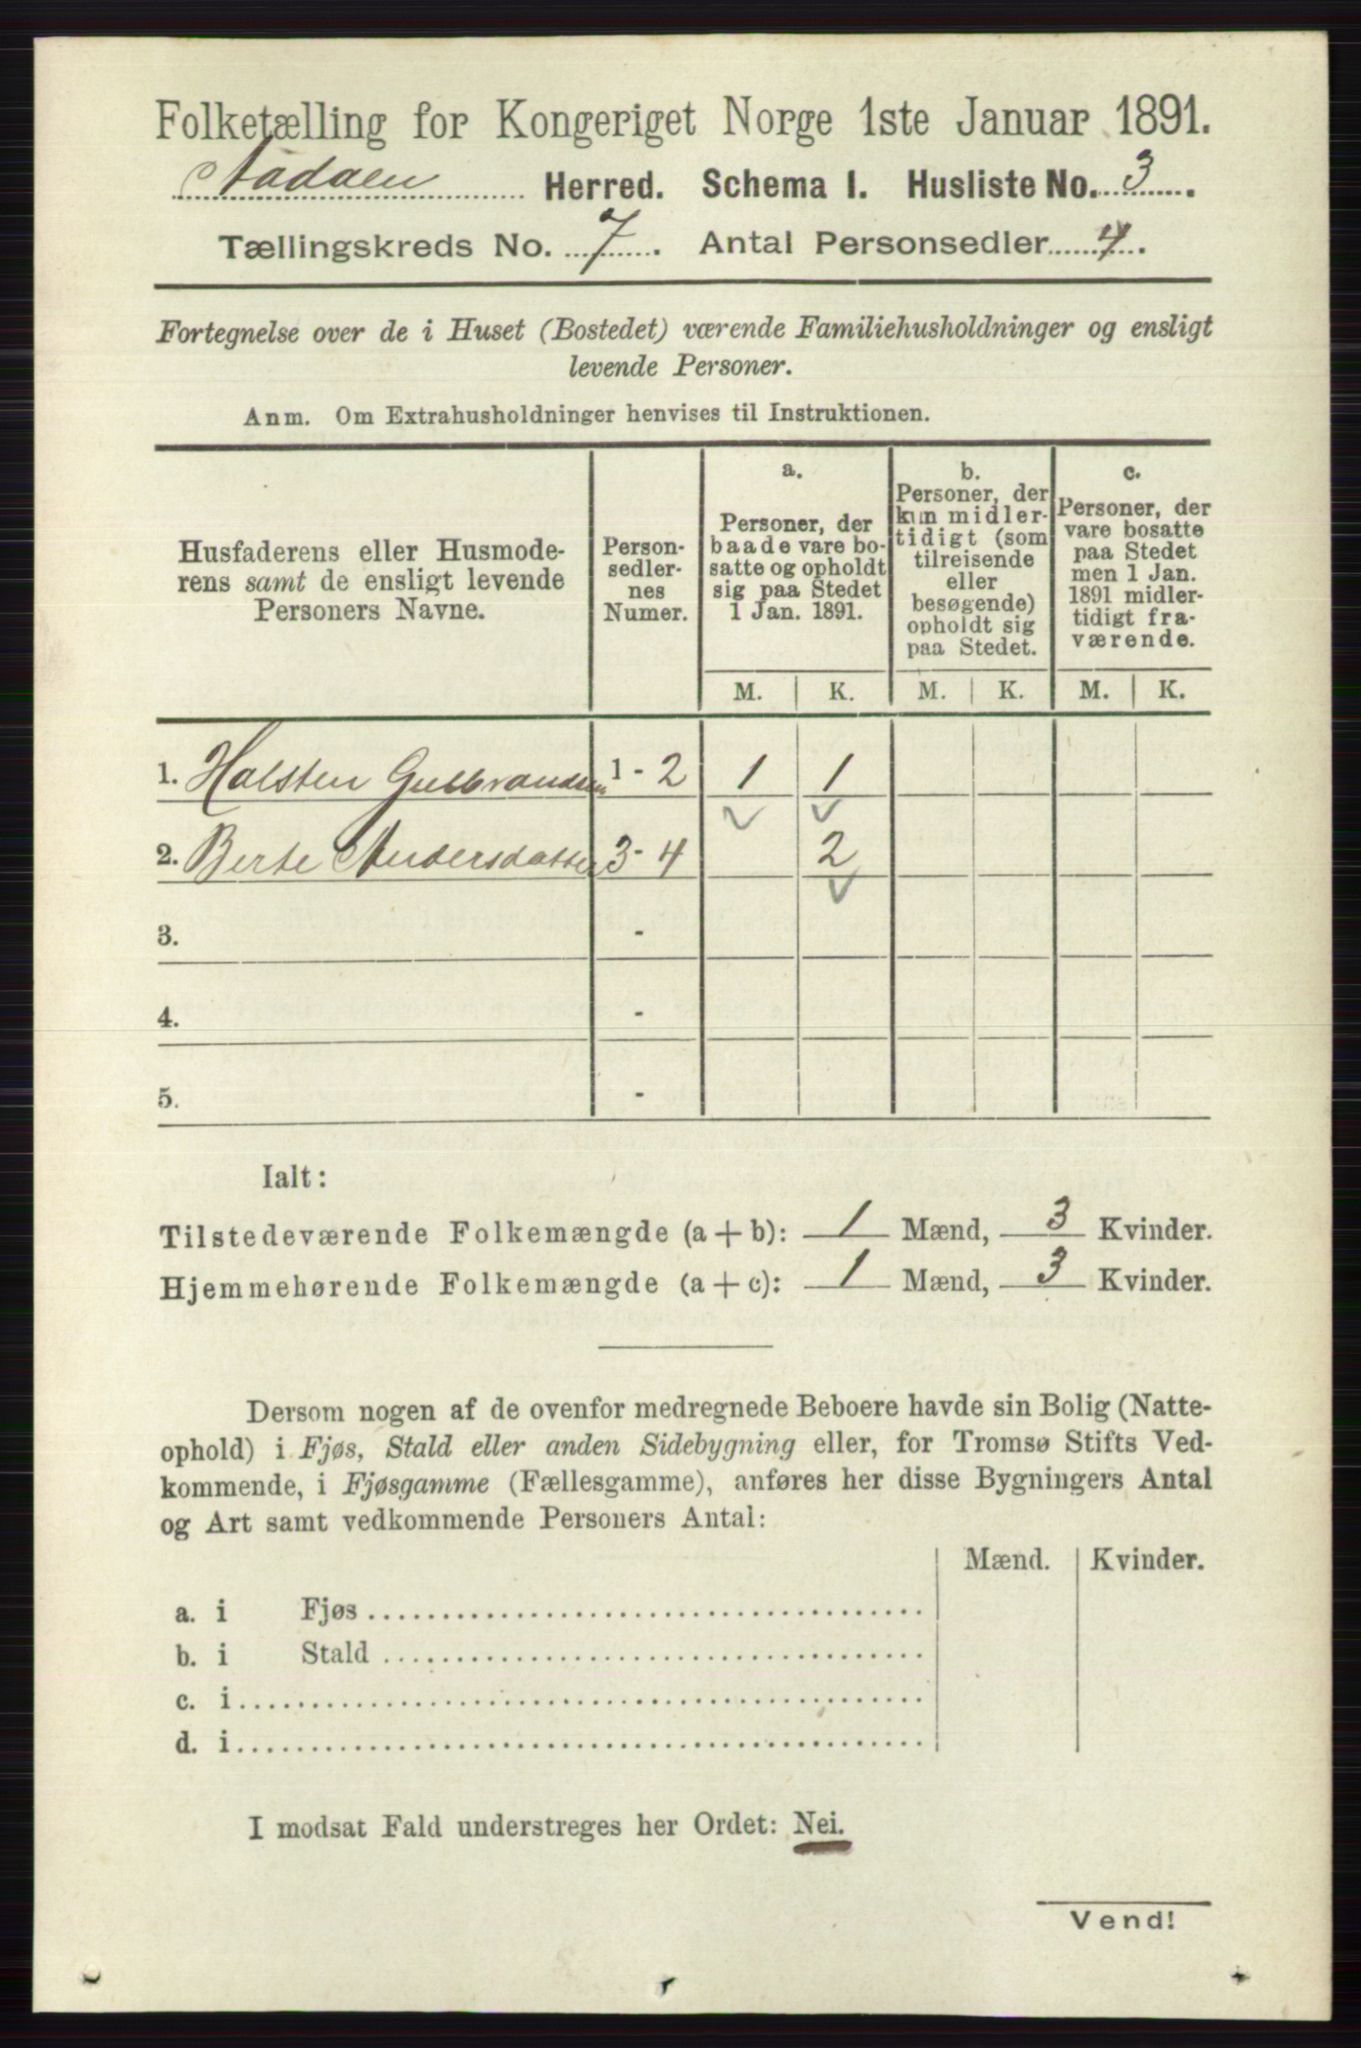 Folketælling for Kongeriget Norge 1ste Januar 1891.
Aadalen Herred. Schema I. Husliste No. 3.
Tællingskreds No. 7. Antal Personsedler 4.
Fortegnelse over de i Huset (Bostedet) værende Familiehusholdninger og ensligt
levende Personer.
Anm. Om Extrahusholdninger henvises til Instruktionen.
Husfaderens eller Husmode-
rens samt de ensligt levende
Personers Navne.
Person-
sedler-
nes
Numer.
a.
Personer, der
baade vare bo-
satte og opholdt
sig paa Stedet
1 Jan. 1891.
b.
Personer, der
kun midler-
tidigt (som
tilreisende
eller
besøgende)
opholdt sig
paa Stedet.
c.
Personer, der
vare bosatte
paa Stedet
men 1 Jan.
1891 midler-
tidigt fra-
værende.
M. K. M. K. M. K.
1. Halsten Gulbrandsen 1-2 1 1
2. Berte Andersdatter 3-4 2
3. -
4. -
5. -
Ialt:
Tilstedeværende Folkemængde (a+b): 1 Mænd, 3 Kvinder.
Hjemmehørende Folkemængde (a+c): 1 Mænd, 3 Kvinder.
Dersom nogen af de ovenfor medregnede Beboere havde sin Bolig (Natte-
ophold) i Fjøs, Stald eller anden Sidebygning eller, for Tromsø Stifts Ved-
kommende, i Fjøsgamme (Fællesgamme), anføres her disse Bygningers Antal
og Art samt vedkommende Personers Antal:
Mænd. Kvinder.
a. i Fjøs
b. i Stald
c. i
d. i
I modsat Fald understreges her Ordet: Nei.
Vend!